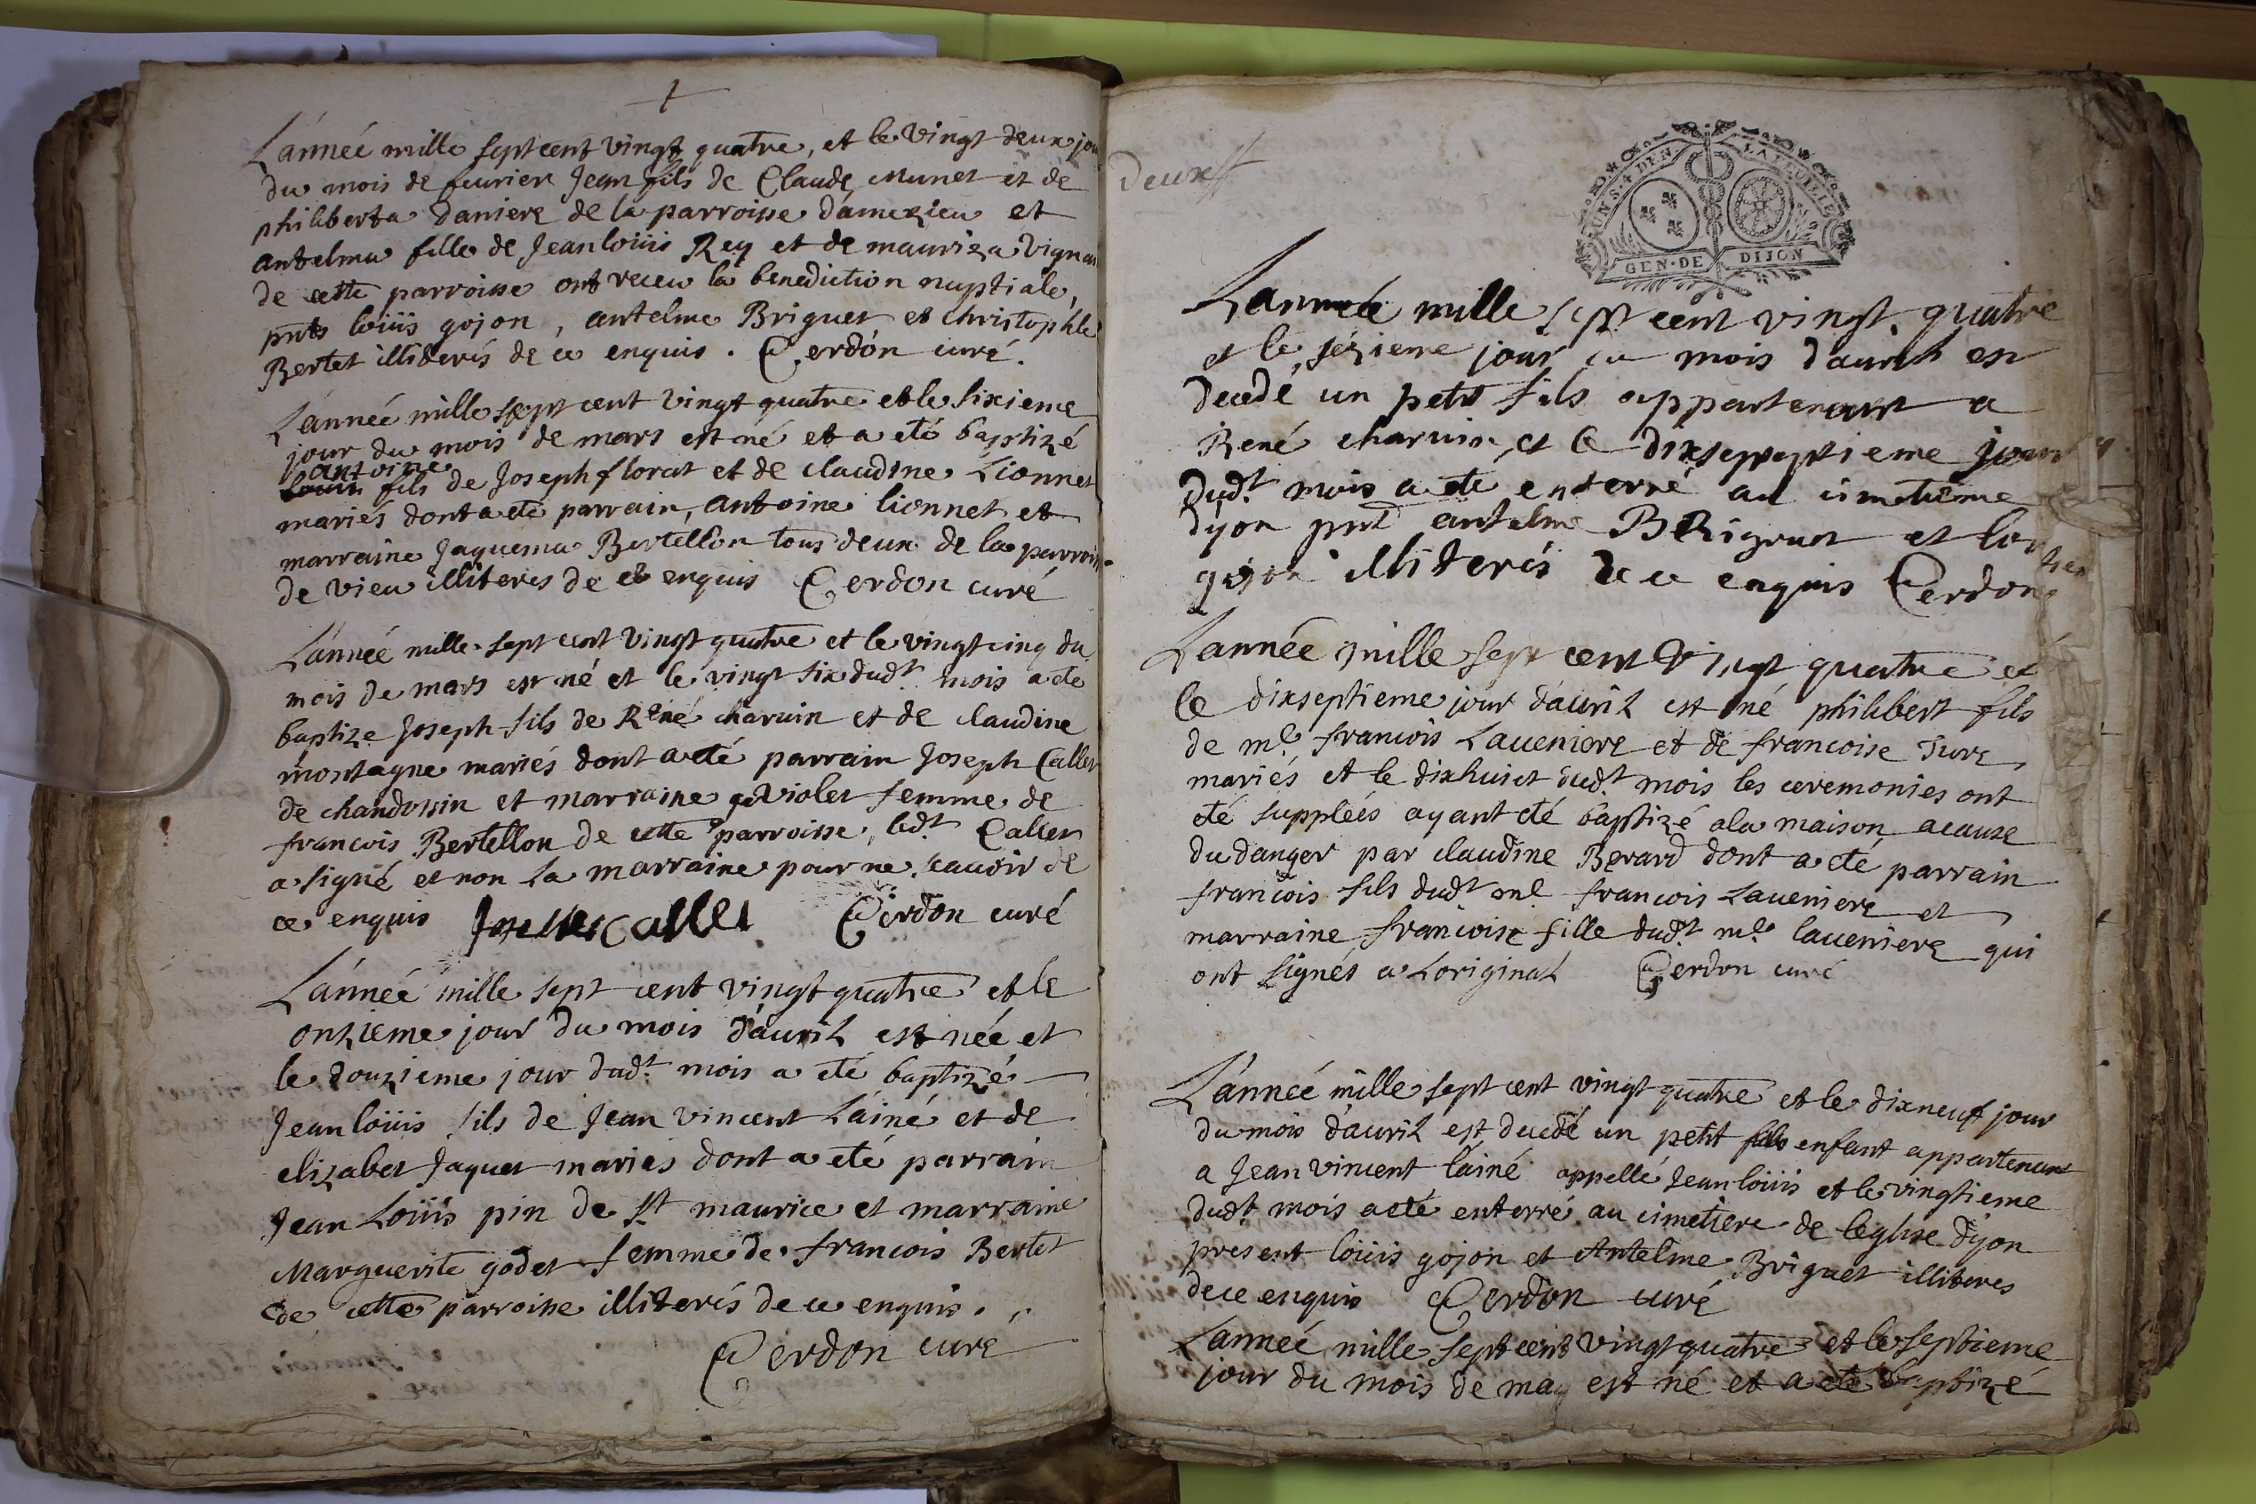 L'année mille sept cent vingt quatre, et le vingt deux jou
du mois de feurier Jean fils de Claude Munet et de
philiberta daniere de la parroisse d'amezieu et
antelma fille de Jean loüis Rey et de mauriza Vignau
de cette parroisse ont receu la benediction nuptiale,
pnts loüis gojon, antelme Briguet et christophle
Bertet illiterés de ce enquis. Cerdon curé.
L'année mille sept cent vingt quatre et le sixieme
jour du mois de mars est né et a eté baptizé
antoine
fils de Joseph florat et de claudine Lionnet
mariés dont a eté parrain, antoine lionnet et
marraine Jaquema Bertellon tous deux de la parroisse
de vieu illiteres de ce enquis Cerdon curé
L'année mille sept cent vingt quatre et le vingt cinq du
mois de mars est né et le vingt six dudt mois a eté
baptize Joseph fils de René charuin et de claudine
montagne mariés dont a eté parrain Joseph Callet
de chandossin et marraine violet femme de
francois Bertellon de cette parroisse, ledt Callet
a signé et non la marraine pour ne scauoir de
ce enquis Joseph Callet Cerdon curé
L'année mille sept cent vingt quatre et le
onzieme jour du mois d'auril est née et
le douzieme jour dudt mois a eté baptizé
Jean loüis fils de Jean vincent L'ainé et de
elizabet Jaquet mariés dont a eté parrain
Jean Loüis pin de St maurice et marraine
Marguerite godet femme de francois Bertet
de cette parroisse illiterés de ce enquis.
Cerdon curé
deux
UN S. 4 DEN. LA FEUILLE
GEN. DE DIJON
L'année mille sept cent vingt quatre
et le sezieme jour du mois d'auril est
decedé un petit fils appartenant a
René charuin et le dixseptieme jour
dudt mois a eté enterré au cimetieme
dyon pnt antelme BRiguet et louis
gojon illiterés de ce enquis Cerdon
L'année mille sept cent vingt quatre et
le dixseptieme jour d'auril est né philibert fils
de me francois Laueniere et de francoise Jure
mariés et le dixhuict dudt mois les ceremonies ont
eté suppleés ayant eté baptizé a la maison acause
du danger par claudine Berard dont a eté parrain
francois fils dudt me francois Laueniere et
marraine francoise fille dudt me laueniere qui
ont signés a Loriginal Cerdon curé
L'année mille sept cent vingt quatre et le dixneuf jour
du mois d'auril est decedé un petit enfant appartenant
a Jean vincent l'ainé appellé Jean loüis et le vingtieme
dudt mois a eté enterré au cimetiere de leglise dyon
present loüis gojon et Antelme Briguet illiteres
de ce enquis Cerdon curé
L'année mille sept cent vingt quatre et le septieme
jour du mois de may est né et a eté baptizé